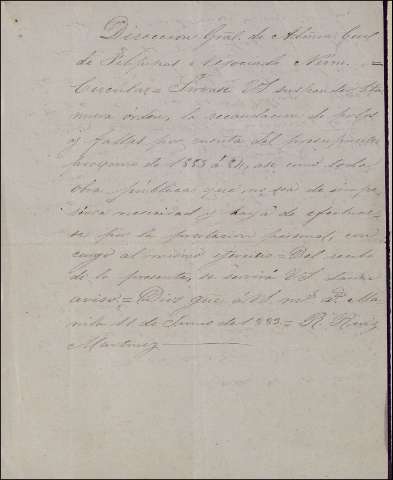 Direccion Gral. de Admon. Civil
de Filipinas = Negociado Núm.
Circular = Sirvase VS suspender, hta
nueva órden, la recaudacion de polos
y fallas por cuenta del presupuesto
procsimo de 1883 á 84, asi como toda
obra pública que no sea de impe-
riosa necesidad y haya de efectuar-
se por la prestacion personal, con
cargo al mismo ejercicio = Del recibo
de la presente, se servirá VS darme
aviso. = Dios gue á VS ms. as. Ma-
nila 11 de Junio de 1883 = R. Ruiz
Martinez